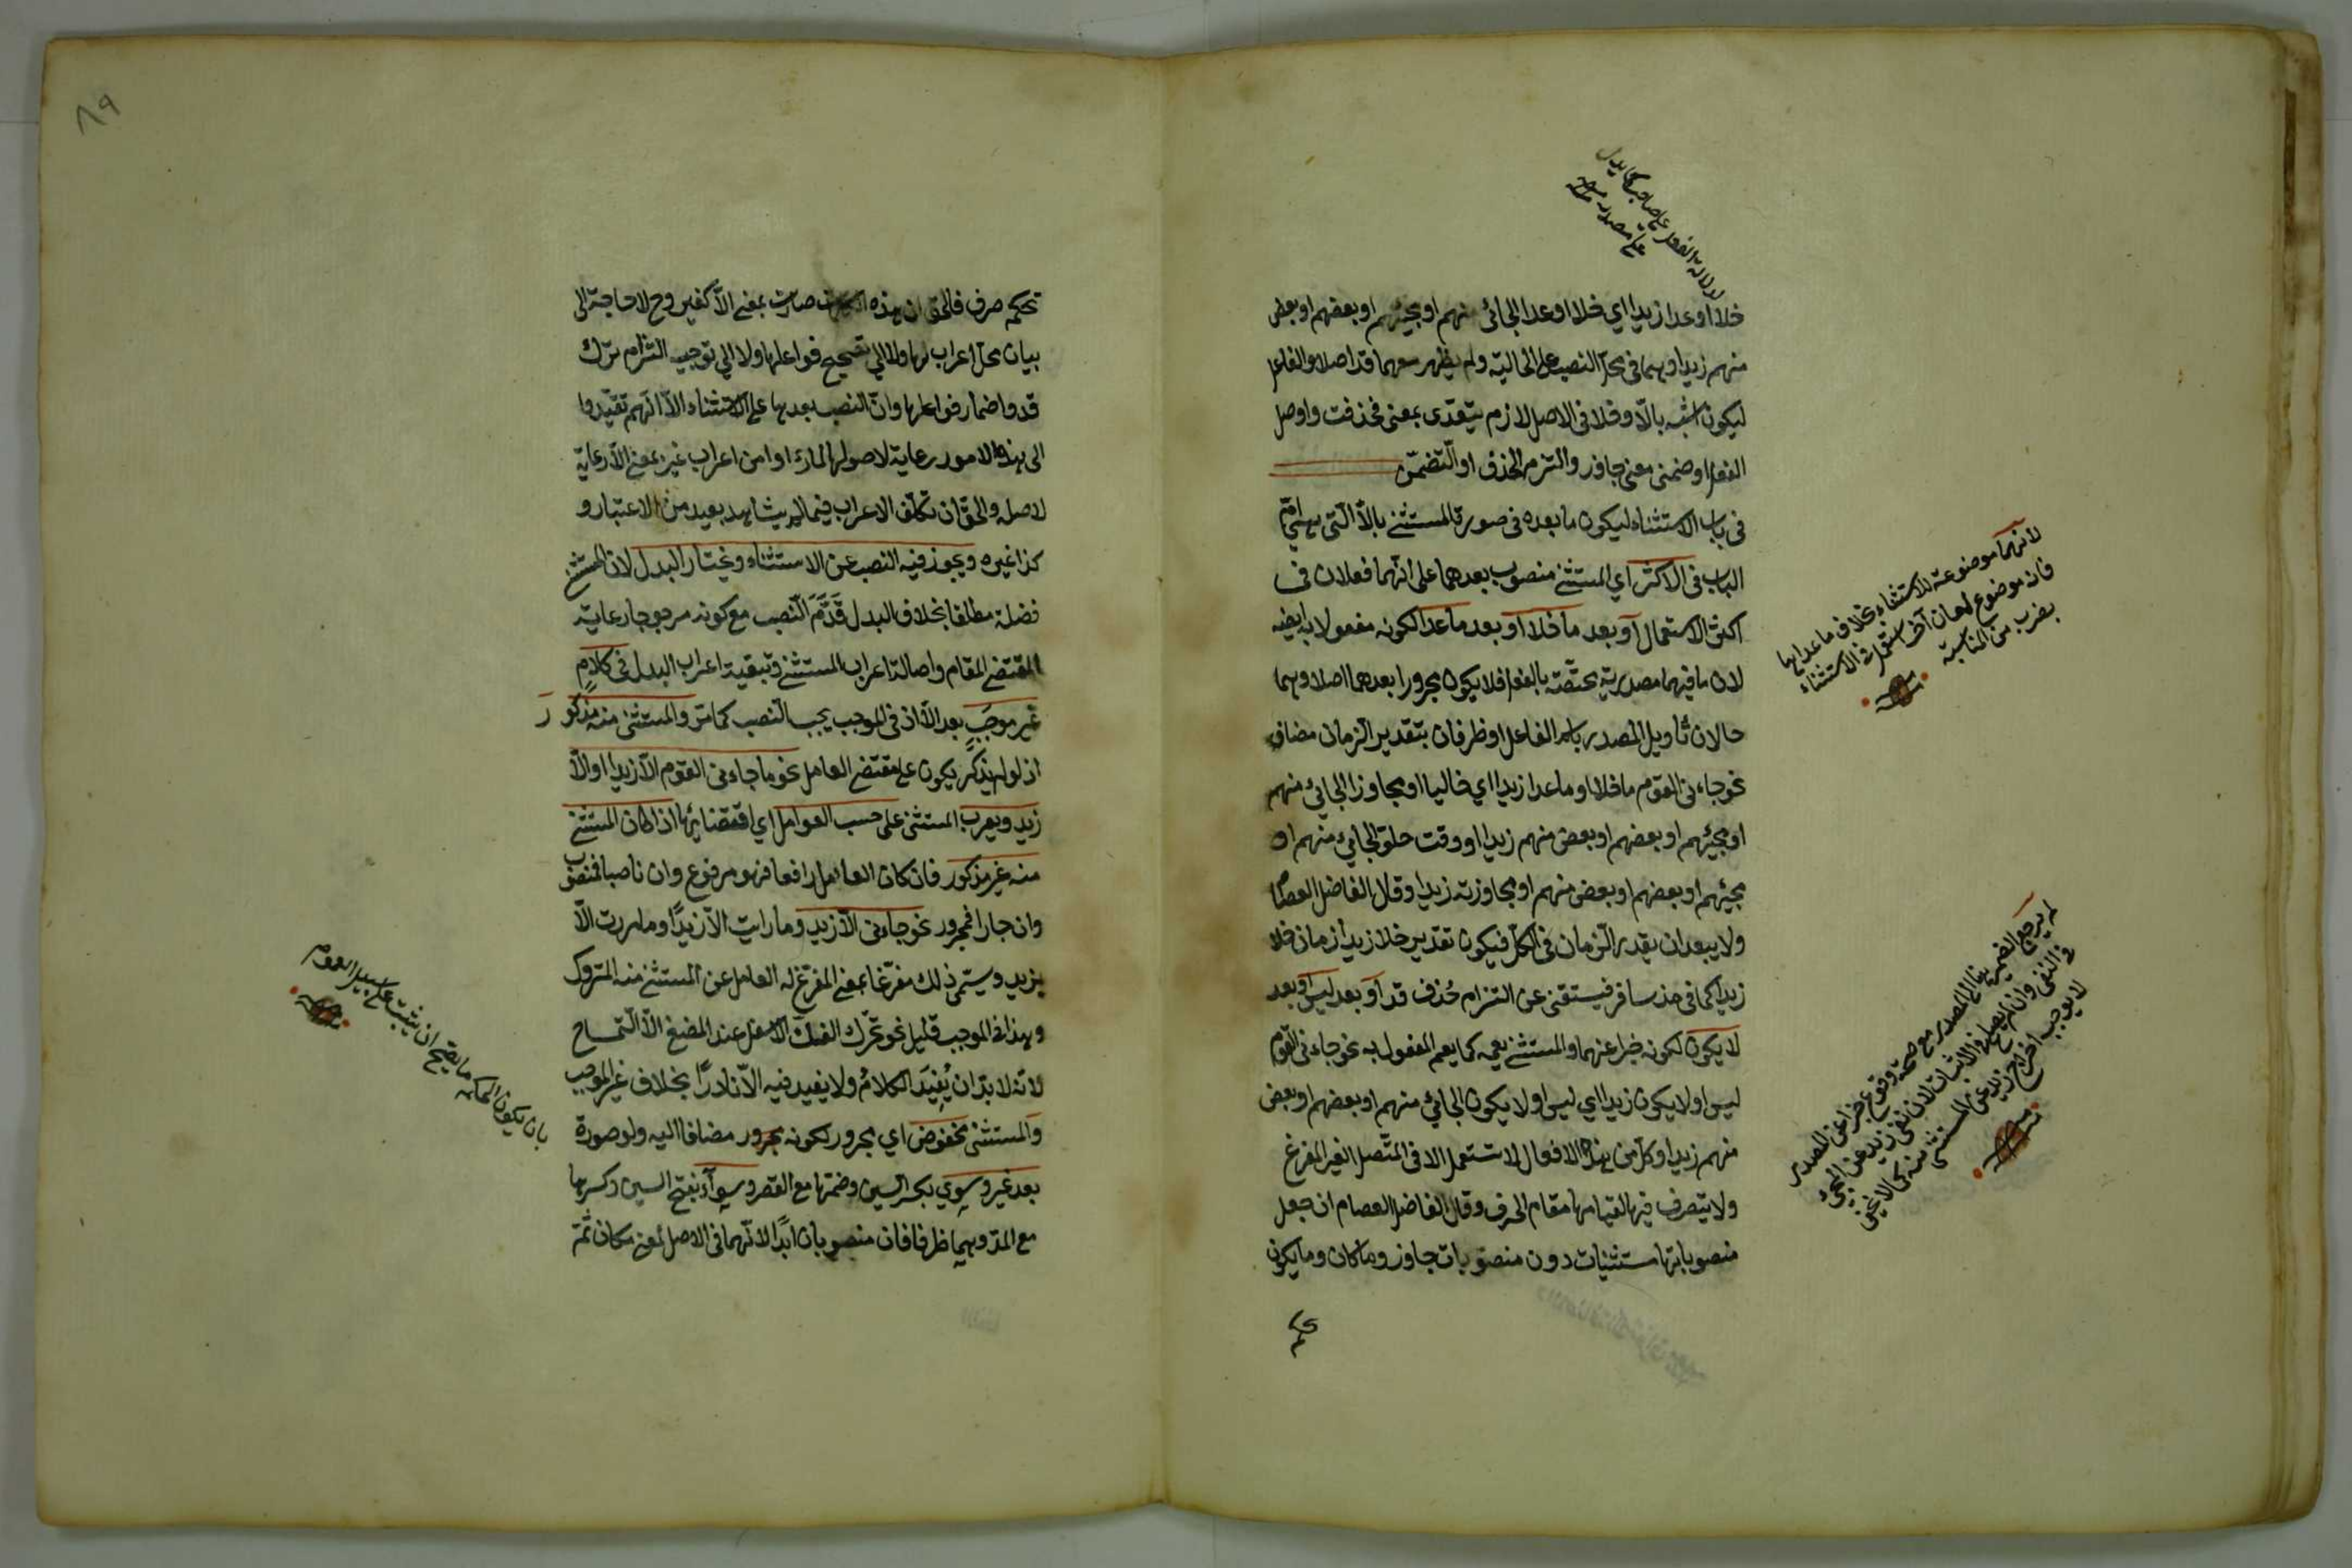 خلا او عدا زيدا اي خلا او عدا الجائى منهم او مجيئهم او بعضهم او بعض
منهم زيدا وهما فى محل النصب على الحالية ولم يظهر معهما قد اصلا والفاعل
ليكون اشبه بالّا وخلا فى الاصل لازم يتعدّى بمعنى فحذفت واوصل
الفعل او ضمن معنى جاوز والتزم الحذف او التّضمّن
فى باب الاستثناء ليكون ما بعده فى صورة المستثنى بالّا الّتى هى امّ
الباب فى الاكثر اي المستثنى منصوب بعدهما على انّهما فعلان فى
اكثر الاستعمال او بعد ما خلا او بعد ما عدا لكونه مفعولا به ايضا
لان ما فيهما مصدرية مختصّة بالفعل فلا يكون مجرورا بعدهما اصلا وهما
حالان بتأويل المصدر باسم الفاعل او ظرفان بتقدير الزمان مضاف
نحو جاءنى القوم ما خلا او ما عدا زيدا اي خاليا او مجاوزا الجائى منهم
او مجيئهم او بعضهم او بعض منهم زيدا او وقت خلو الجائى منهم او
مجيئهم او بعضهم او بعض منهم او مجاوزته زيدا وقال الفاضل العصام
ولا يبعد ان يقدر الزمان فى الكل فيكون تقدير خلا زيدا زمان خلا
زيدا كما فى مذ سافر فيستغنى عن التزام حُذف قد او بعد ليس او بعد
لا يكون لكونه خبرا عنهما والمستثنى يعمه كما يعم المفعول به نحو جاءنى القوم
ليس او لا يكون زيدا اي ليس او لا يكون الجائى منهم او بعضهم او بعض
منهم زيدا وكل من هذه الافعال لا تستعمل الا فى المتّصل الغير المفرغ
ولا يتصرف فيها لقيامها مقام الحرف وقال الفاضل العصام ان جعل
منصوباتها مستثنيات دون منصوبات جاوز وما كان وما يكون
لدلالة الفعل على صاحبه كما يدل
على مصدره
لانهما موضوعة للاستثناء بخلاف ما عداها
فانه موضوع لمعان آخر استعمل فى الاستثناء
بضرب من المناسبة
لم يرجع الضمير الى المصدر مع صحة وقوع خبرا عن المصدر
فى النفى وان لم يصلح فى الاثبات لان نفى زيد عن المجئ
لا يوجب اخراج زيد عن المستثنى منه كما لا يخفى
٨٩
تحكم صرف فالحق ان هذه الكلمات صارت بمعنى الّا كغير وح لا حاجة الى
بيان محل اعراب لها ولا الى تصحيح فواعلها ولا الى توجيه التزام ترك
قد واضمار فواعلها وانّ النصب بعدها على الاستثناء الّا انّهم تقيّدوا
الى هذه الامور رعاية لاصولها المارة او امن اعراب غير بمعنى الّا رعاية
لاصله والحق ان تكلّف الاعراب فيما لم يشاهد بعيد من الاعتبار و
كذا غيره ويجوز فيه النصب عن الاستثناء ويختار البدل لان المستثنى
فضلة مطلقا بخلاف البدل قَدَّمَ النّصب مع كونه مرجوجا رعاية
المقتضى المقام واصالة اعراب المستثنى وتبقية اعراب البدل فى كلام
غير موجَبٍ بعد الّا اذ فى الموجب يجب النّصب كما مرّ والمستثنى منه مذكور
اذ لو لم يذكر يكون على مقتضى العامل نحو ما جاءنى القوم الّا زيدا او الّا
زيد ويعرب المستثنى على حسب العوامل اي اقتضائها اذا كان المستثنى
منه غير مذكور فان كان العامل رافعا فهو مرفوع وان ناصبا فمنصوب
وان جارا فمجرور نحو جاءنى الّا زيد وما رايت الّا زيدًا وما مررت الّا
بزيد ويسمّى ذلك مفرّغا بمعنى المفرّغ له العامل عن المستثنى منه المتروك
وهذا فى الموجب قليل نحو تحرّك الفكّ الاسفل عند المضغ الّا التمساح
لانه لا بدّ ان يُفيدَ الكلامُ ولا يفيد فيه الّا نادرًا بخلاف غير الموجب
والمستثنى مخفوض اي مجرور لكونه مجرور مضافا اليه ولو صورة
بعد غير وسوى بكسر السين وضمها مع القصر وسواء بفتح السين وكسرها
مع المدّ وهما ظرفان منصوبان ابدًا لانّهما فى الاصل لمعنى مكان ثَمّ
بان يكون الحكم مما يصح ان يثبت على سبيل العموم